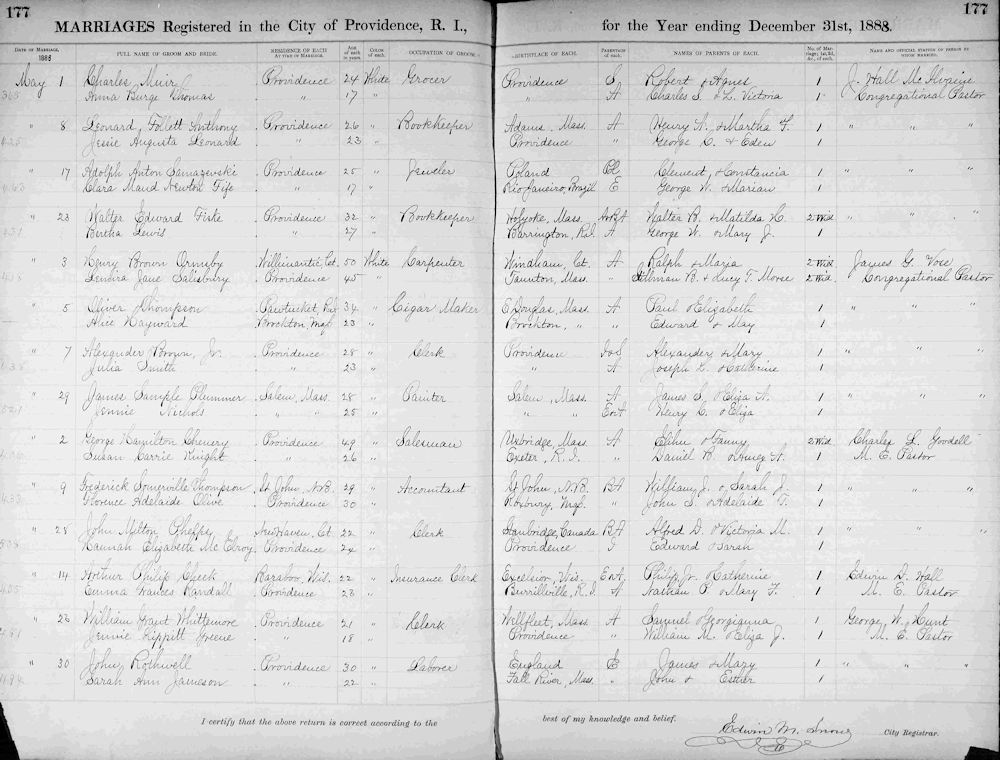 177
177
MARRIAGES Registered in the City of Providence, R. I., for the Year ending December 31st, 1888.
DATE OF MARRIAGE. 1888 FULL NAME OF GROOM AND BRIDE. RESIDENCE OF EACH AT TIME OF MARRIAGE. Age of each in years. COLOR of each. OCCUPATION OF GROOM BIRTHPLACE OF EACH. Parentage of each. NAMES OF PARENTS OF EACH. No. of Marriage; 1st, 2d, &c., of each. NAME AND OFFICIAL STATION OF PERSON BY WHOM MARRIED.
May 1 Charles Muir Providence 24 White Grocer Providence S Robert & Agnes 1 J. Hall McIlvaine
Anna Burge Thomas " 17 " " A Charles S. & L. Victoria 1 Congregational Pastor
" 8 Leonard Follett Anthony Providence 26 " BookKeeper Adams, Mass. A Henry A. & Martha F. 1 " "
Jessie Augusta Leonard " 23 " Providence " George C. & Eden 1
" 17 Adolph Anton Providence 25 " Jeweler Poland Pl Clement & Constancia 1
Clara Maud Newton Fife " 17 " Rio Janeiro, Brazil E George W. & Marian 1
" 23 Walter Edward Providence 32 " BookKeeper Holyoke, Mass. Walter B. & Matilda 2 Wid " "
Bertha Lewis " 27 " Barrington, R.I. A George W. & Mary J. 1
" 3 Henry Brown Ormsby Willimantic Ct. 50 White Carpenter Windham, Ct. A Ralph & Maria 2 Wid James G. Vose
Jane Salisbury Providence 45 Taunton, Mass. " B. & Lucy T. Morse 2 Wid Congregational Pastor
" 5 Oliver Thompson Pawtucket, 34 " Cigar Maker E Douglas, Mass. A Paul & Elizabeth 1 " "
Alice Hayward Brockton, 23 " Brockton, " " Edward & May 1
" 7 Alexander Brown, Jr. Providence 28 " Clerk Providence Alexander & Mary 1 " "
Julia Smith " 23 " " A Joseph & Catherine 1
" 29 James Sample Plummer Salem, Mass. 28 " Painter Salem, Mass. A James S. & Eliza A. 1 " "
Jennie Nichols " " 25 " " " Henry C. & Eliza 1
" 2 George Hamilton Chenery Providence 49 " Salesman Uxbridge, Mass. A & Fanny 2 Wid Charles L. Goodell
Susan Carrie Knight " 26 " Exeter, R.I. " Daniel 1 M. E. Pastor
" 9 Frederick Somerville Thompson St John, N.B. 29 " Accountant St John, N.B. BA William J. & Sarah J. 1 " "
Florence Adelaide Olive Providence 30 " Roxbury, A John S. & Adelaide T. 1
" 28 John Milton Phelps New Haven, Ct. 22 " Clerk Stanbridge, Canada BA Alfred D. & Victoria M. 1 " "
Hannah Elizabeth McElroy Providence 24 " Providence I Edward & Sarah 1
" 14 Arthur Philip Cheek Baraboo, Wis. 22 " Insurance Clerk Excelsior, Wis. Philip Jr. & Catherine 1 Edwin D. Hall
Emma Frances Randall Providence 23 " Burrillville, R.I. A Nathan P. & Mary F. 1 M. E. Pastor
" 23 William Grant Whittemore Providence 21 " Clerk Wellfleet, Mass. A Samuel & Georgianna 1 George W. Hunt
Jennie Lippitt Greene " 18 " Providence " William M. & Eliza J. 1 M. E. Pastor
" 30 John Rothwell Providence 30 " Laborer England E James & Mary 1 " "
Sarah Ann Jameson " 22 " Fall River, Mass. " John & Esther 1
I certify that the above return is correct according to the best of my knowledge and belief.
Edwin M. Snow City Registrar.